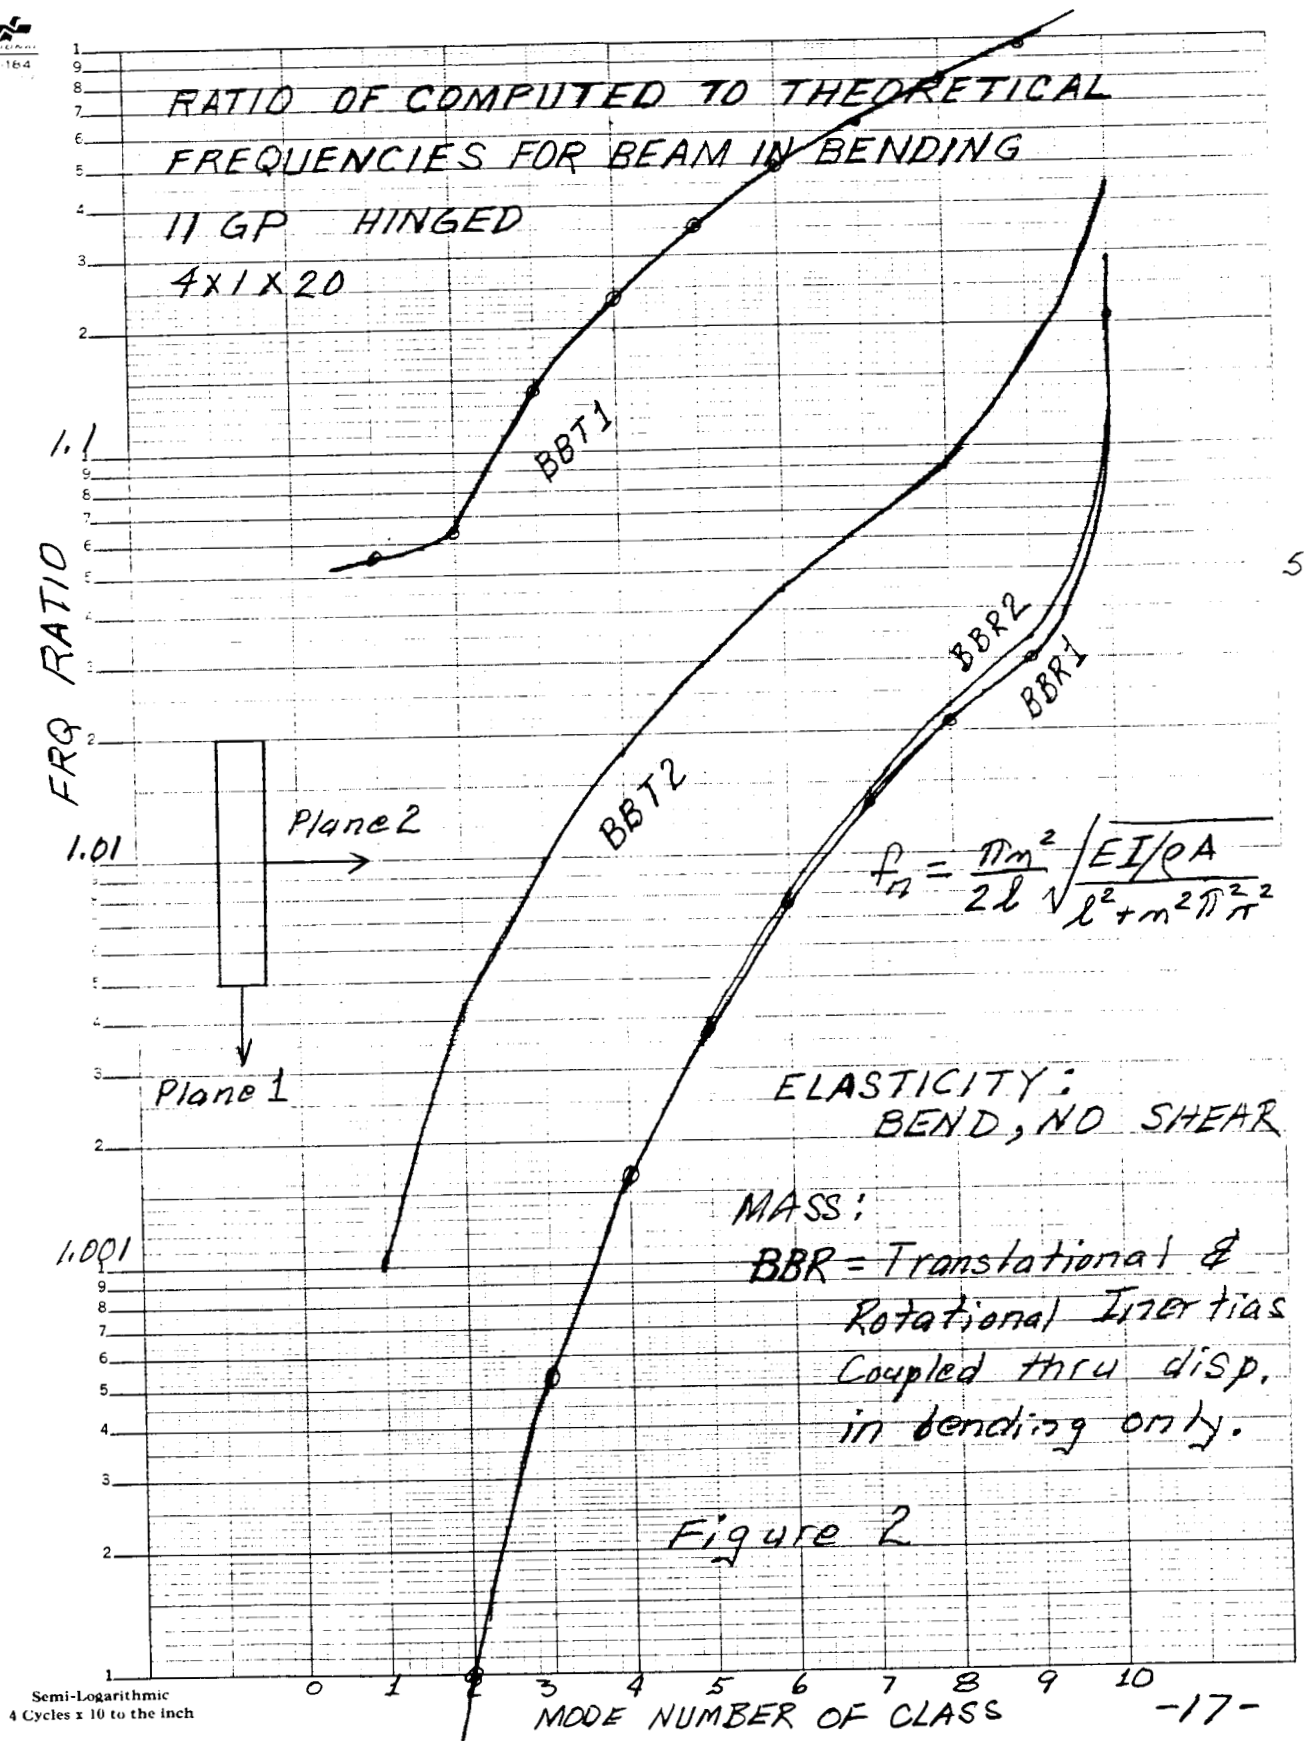 184
RATIO OF COMPUTED TO THEORETICAL
FREQUENCIES FOR BEAM IN BENDING
11 GP HINGED
4X1X20
1
9
8
7
6
5
4
3
2
1.1
1
9
8
7
6
5
4
3
2
1.01
5
4
3
2
1.001
1
9
8
7
6
5
4
3
2
1
FRQ RATIO
BBT1
BBT2
BBR2
BBR1
5
Plane 2
Plane 1
fn = πn² / 2l √(EI/ρA / l² + n²π²r²)
ELASTICITY:
BEND, NO SHEAR
MASS:
BBR = Translational &
Rotational Inertias
Coupled thru disp.
in bending only.
Figure 2
0 1 2 3 4 5 6 7 8 9 10
MODE NUMBER OF CLASS
-17-
Semi-Logarithmic
4 Cycles x 10 to the inch